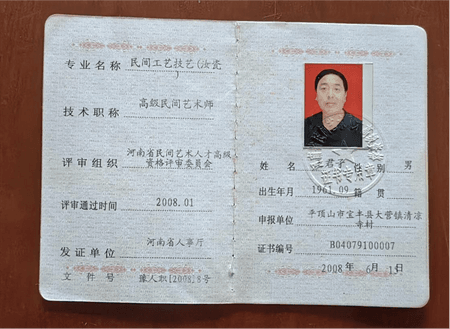 专业名称 民间工艺技艺(汝瓷
)
技术职称 高级民间艺术师
评审组织 河南省民间艺术人才高级
资格评审委员会
评审通过时间 2008.01
发证单位 河南省人事厅
文件号 豫人职[2008]8号
姓名 君子 性别 男
出生年月 1961.09 籍贯
申报单位 平顶山市宝丰县大营镇清凉
寺村
证书编号 B04079100007
2008年6月15